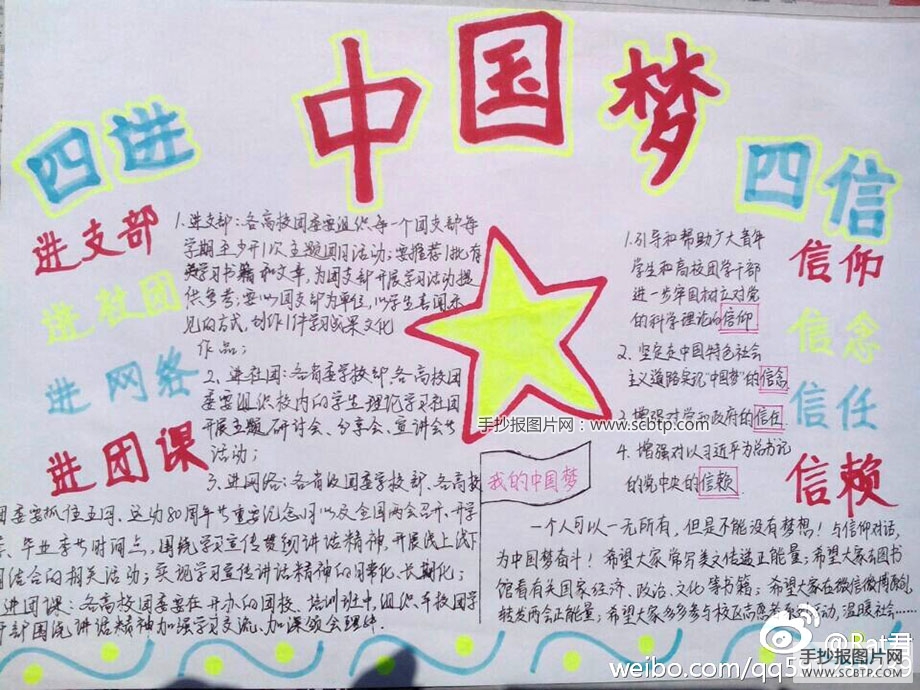 中国梦
四进
四信
进支部
进社团
进网络
进团课
1、进支部：各高校团委要组织每一个团支部每
学期至少开1次主题团日活动；要推荐1批有
学习书籍和文章，为团支部开展学习活动提
供参考；要以团支部为单位，以学生喜闻乐
见的方式，创作1件学习成果文化
作品；
2、进社团：各省委学校部、各高校团
委要组织校内的学生理论学习社团
开展主题研讨会、分享会、宣讲会等
活动；
3、进网络：各省级团委学校部、各高校
团委要抓住五四、运动80周年等重要纪念日以及全国两会召开、开学
毕业季等时间点，围绕学习宣传贯彻讲话精神，开展线上线下
相结合的相关活动；实现学习宣传讲话精神的日常化、长期化；
进团课：各高校团委要在开办的团校、培训班中，组织年校团学
干部围绕讲话精神加强学习交流、加深领会理解.
我的中国梦
1.引导和帮助广大青年
学生和高校团学干部
进一步牢固树立对党
的科学理论的信仰
2、坚定走中国特色社会
主义道路实现“中国梦”的信念
3、增强对党和政府的信任
4、增强对以习近平为总书记
的党中央的信赖
信仰
信念
信任
信赖
一个人可以一无所有，但是不能没有梦想！与信仰对话，
为中国梦奋斗！希望大家常写美文传递正能量；希望大家在图书
馆看有关国家经济、政治、文化等书籍；希望大家在微信微博原创，
转发两会正能量；希望大家多多参与校区志愿者活动，温暖社会……
手抄报图片网：www.scbtp.com
@Rat君
weibo.com/qq5
手抄报图片网
WWW.SCBTP.COM